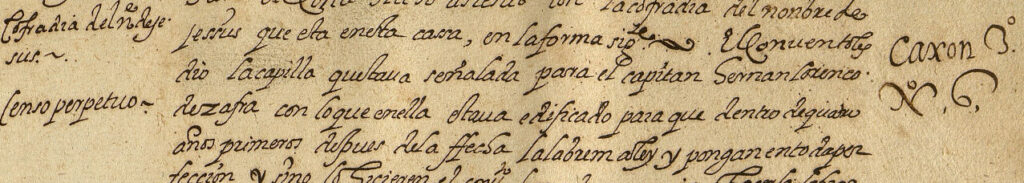 Cofradia del nõ de Je
sus. ~.
Censo perpetuo ~
con la cofradia del nonbre de
Jessus que esta en esta casa, en la forma sigte. ~ El Convento les
dio la capilla que stava señalada para el capitan Hernan lorenco.
de zafra con lo que en ella estava edificado para que dentro de quatro
años primeros despues de la ffecha la labren alli y pongan en toda per
feccion y si no lo hicieren el
Caxon 3º.
Nº. 6.